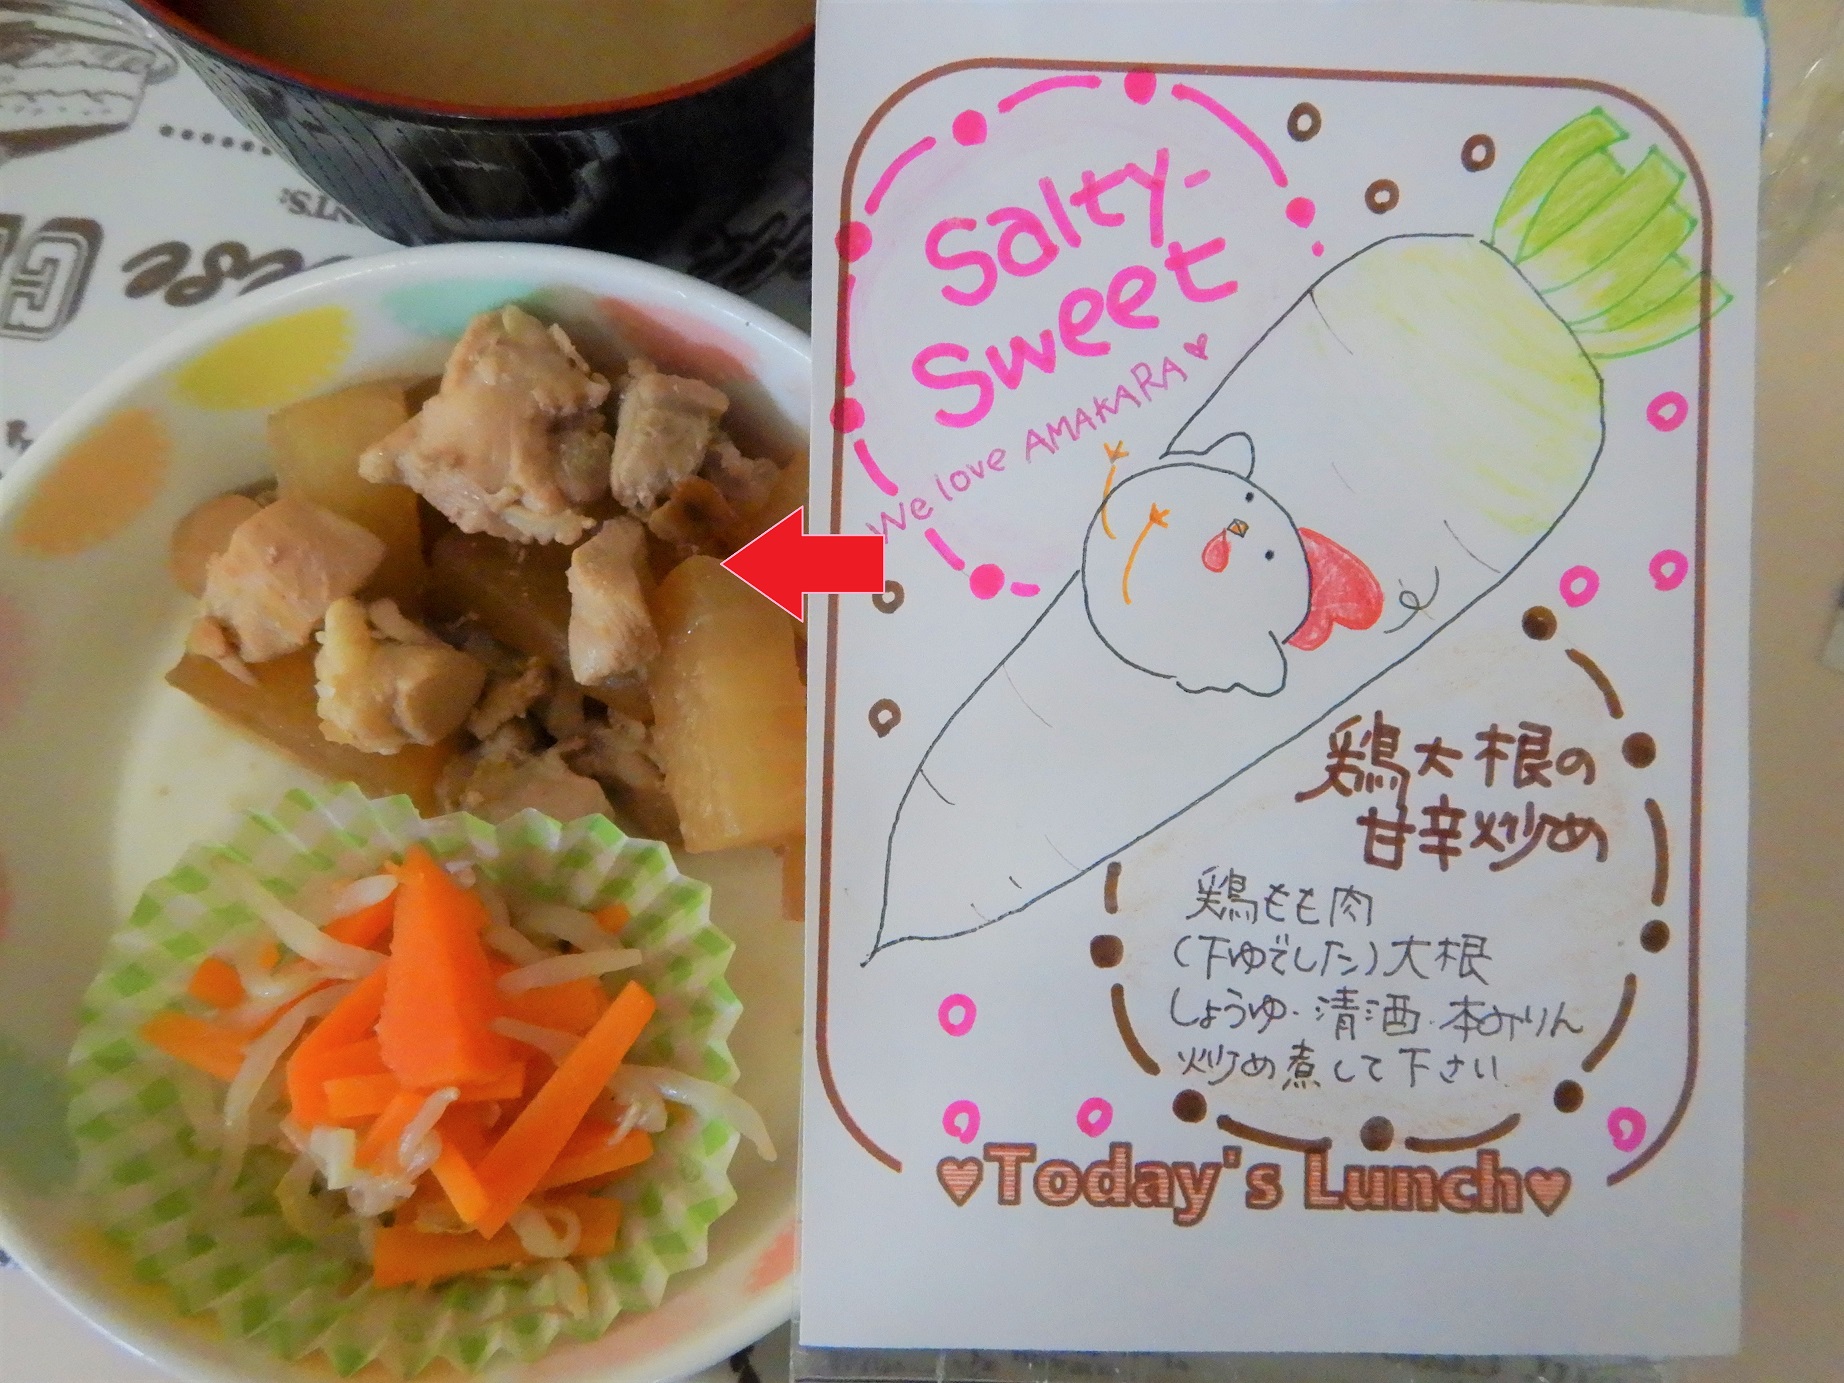 Salty-
Sweet
We love AMAKARA
鶏大根の
甘辛炒め
鶏もも肉
(下ゆでした)大根
しょうゆ・清酒・本みりん
炒め煮して下さい
Today's Lunch